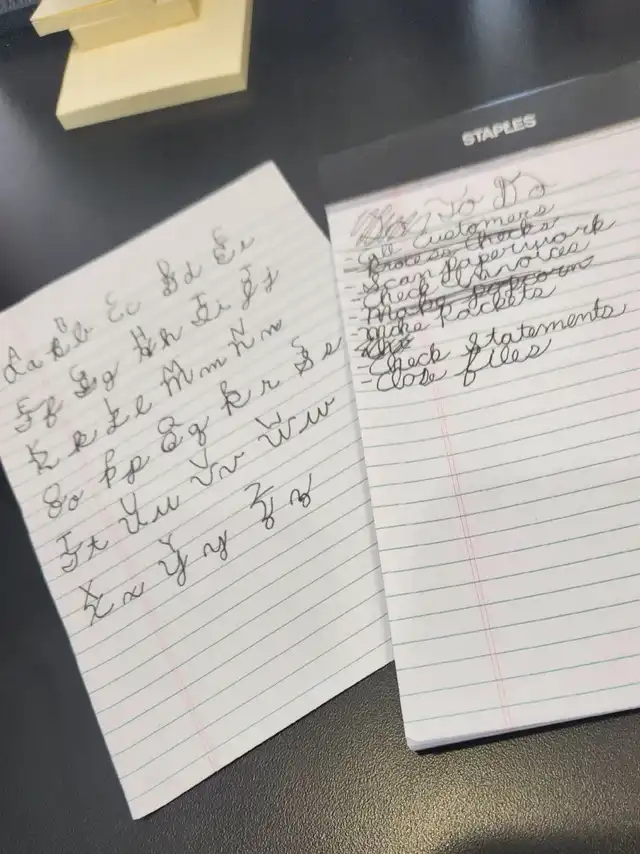 Aa Bb Cc Dd Ee
Ff Gg Hh Ii Jj
Kk Ll Mm Nn
Oo Pp Qq Rr Ss
Tt Uu Vv Ww
Xx Yy Zz
STAPLES
To Do
Customers
- Process Checks
- Scan Paperwork
- Check Invoices
- Make
- Make Packets
- Check Statements
- Close files